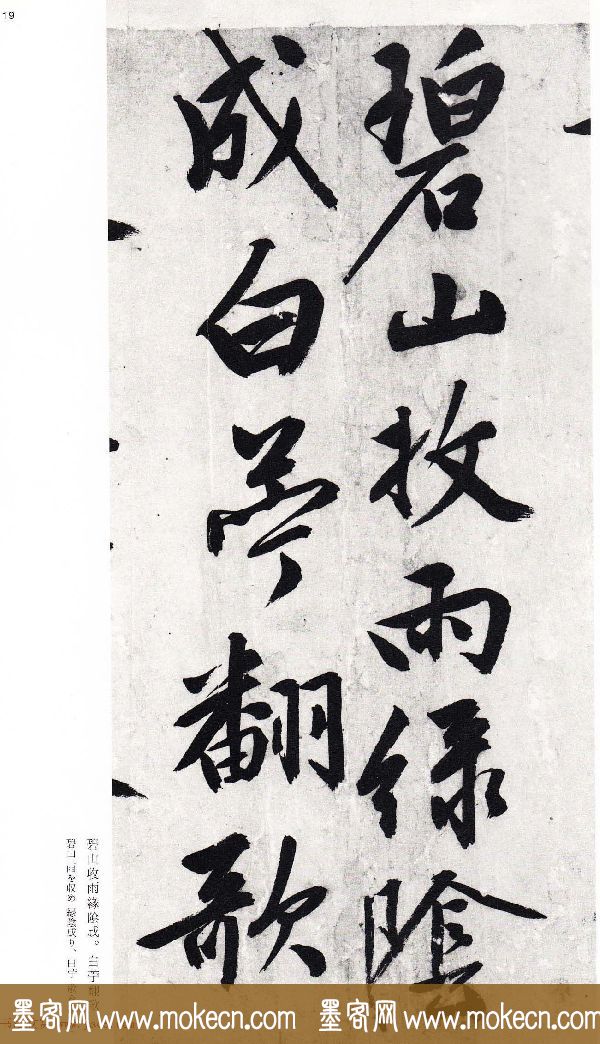 19
碧山收雨綠陰
成白苧翻歌
碧山收雨綠陰成。白苧翻
碧山雨を収め 緑陰成り、白苧
墨客网 www.mokecn.com 墨客网 www.mokecn.com